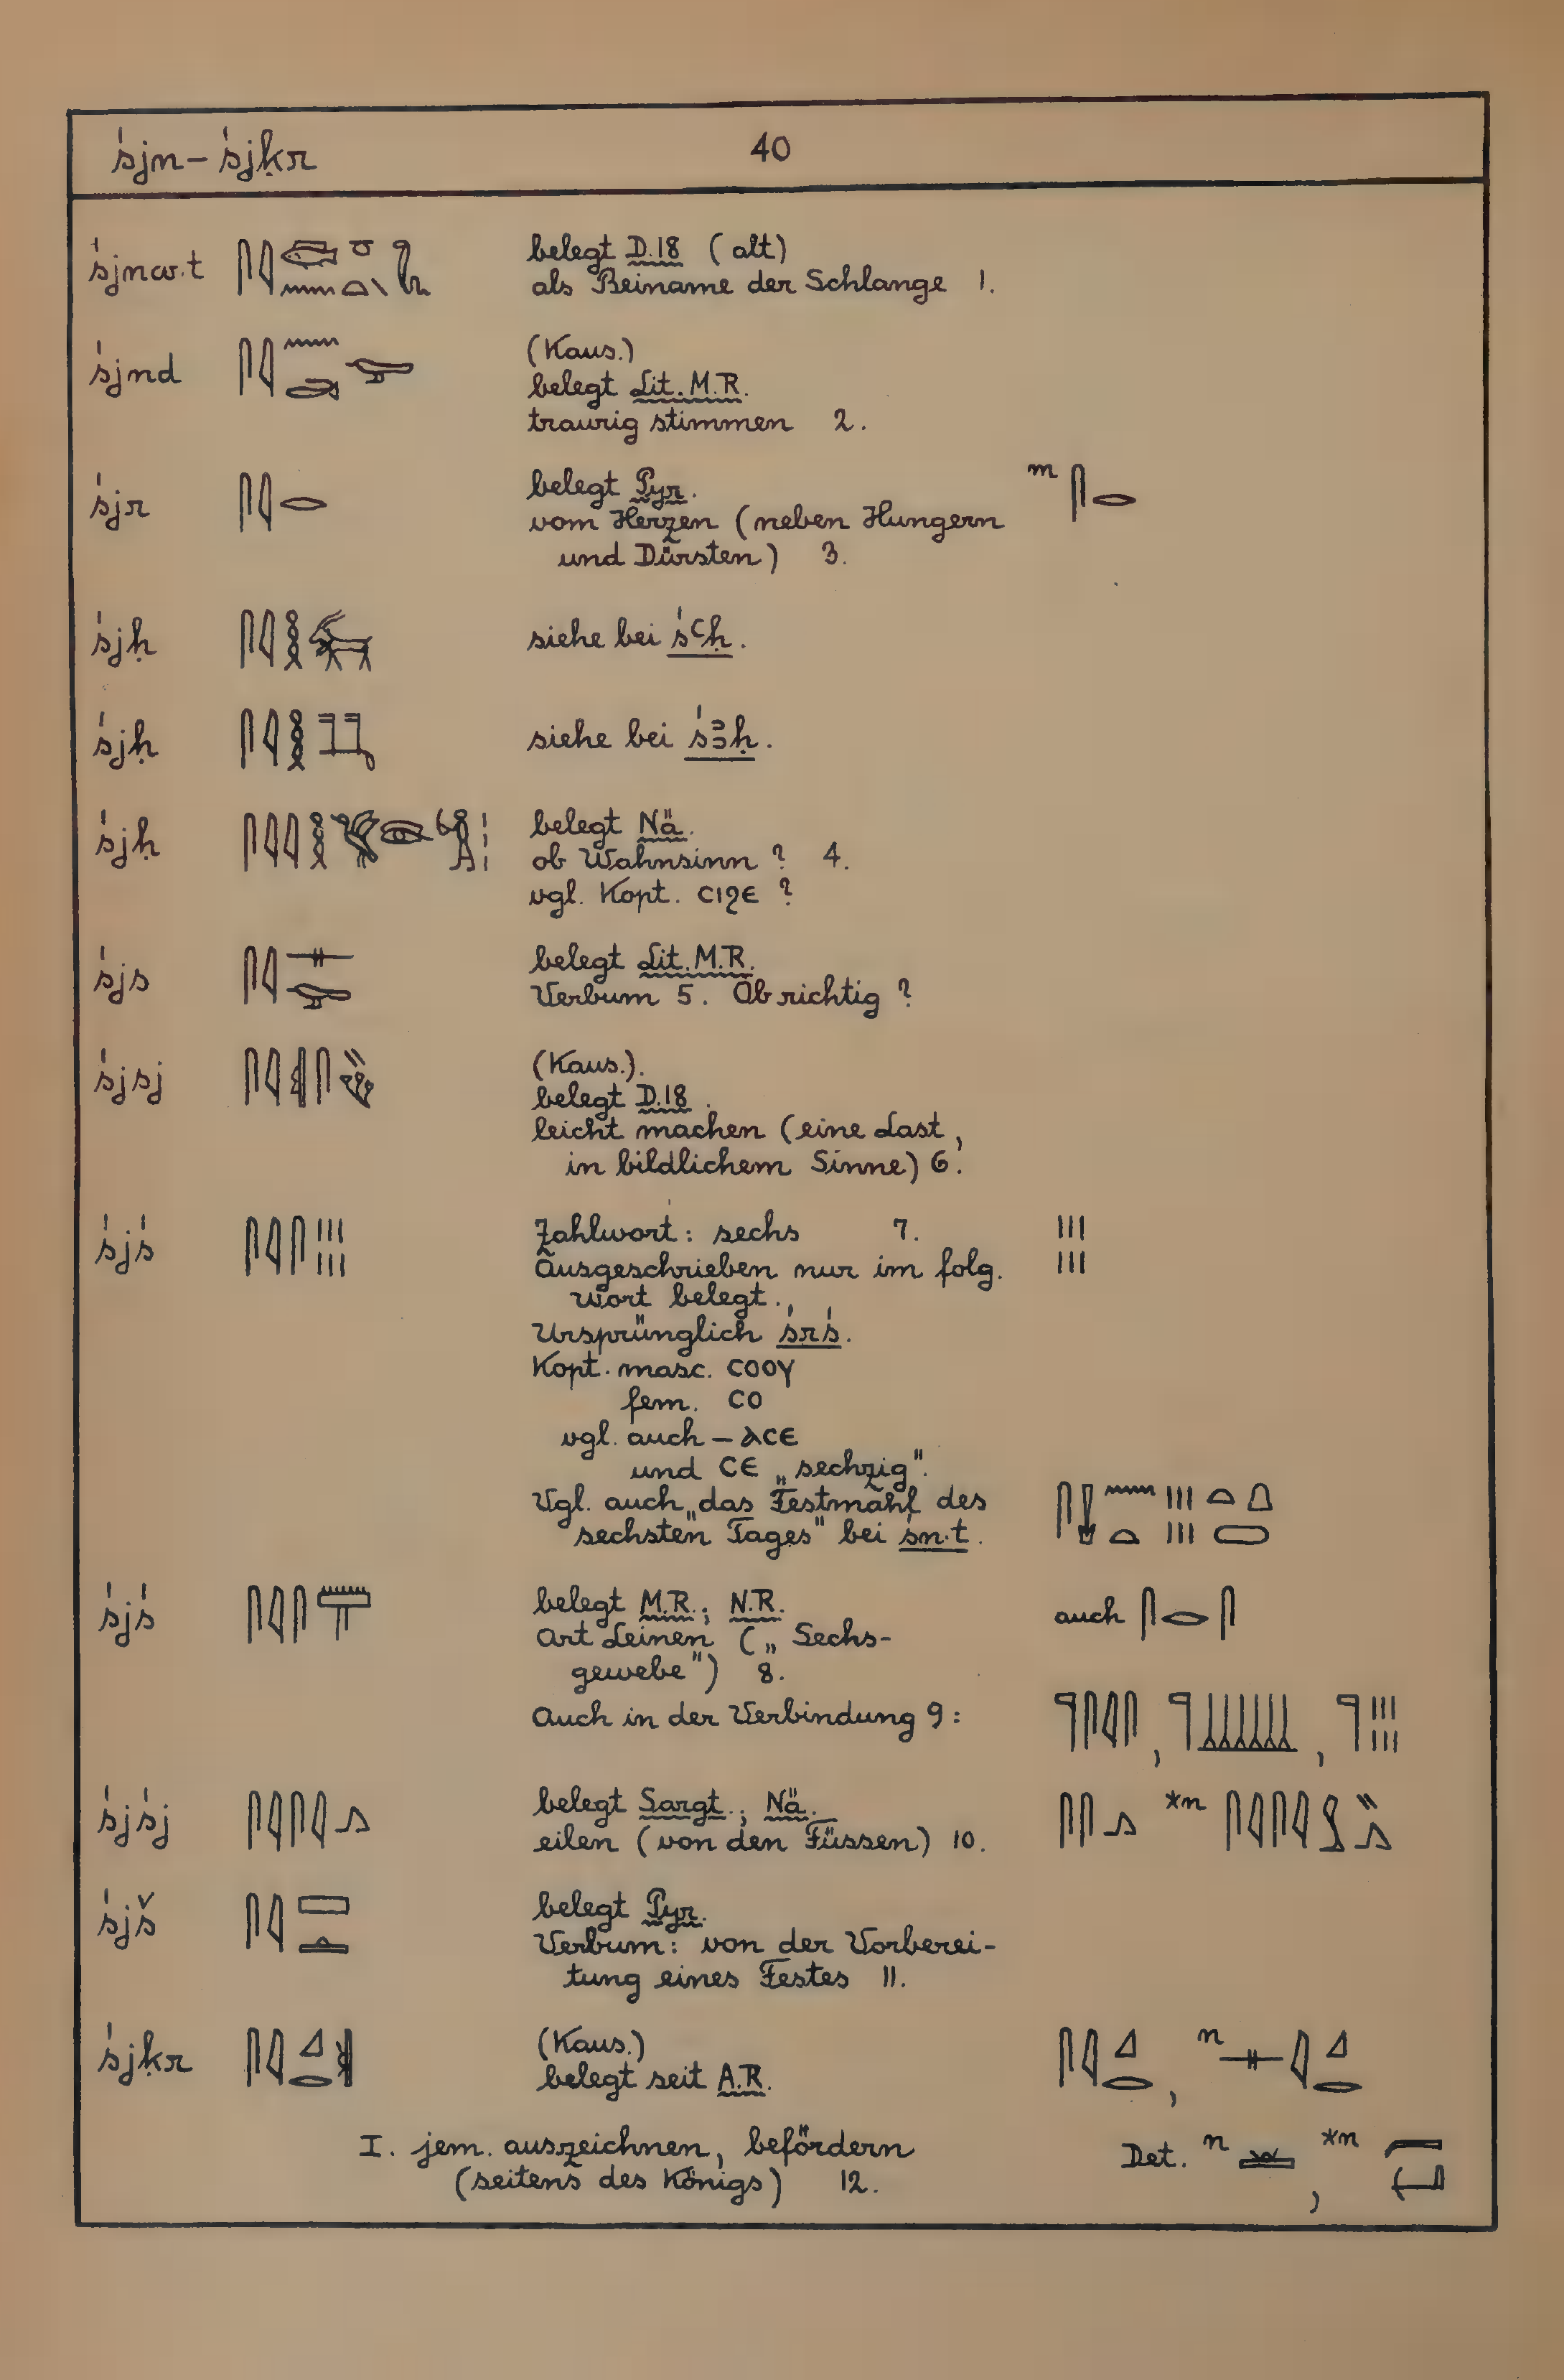 śjn – śjḳr 40
śjnw.t belegt D.18 (alt)
als Beiname der Schlange 1.
śjnd (Kaus.)
belegt Lit. M.R.
traurig stimmen 2.
śjr belegt Pyr. m
vom Herzen (neben Hungern
und Dürsten) 3.
śjḥ siehe bei śꜥḥ.
śjḥ siehe bei śꜣḥ.
śjḥ belegt Nä.
ob Wahnsinn? 4.
vgl. Kopt. ⲥⲓϩⲉ ?
śjs belegt Lit. M.R.
Verbum 5. Ob richtig?
śjsj (Kaus.).
belegt D.18.
leicht machen (eine Last,
in bildlichem Sinne) 6.
śjś Zahlwort: sechs 7.
Ausgeschrieben nur im folg.
Wort belegt.
Ursprünglich śrś.
Kopt. masc. ⲥⲟⲟⲩ
fem. ⲥⲟ
vgl. auch – ⲁⲥⲉ
und ⲥⲉ „sechzig".
Vgl. auch „das Festmahl des
sechsten Tages" bei śn.t.
śjś belegt M.R.; N.R. auch
Art Leinen („Sechs-
gewebe") 8.
Auch in der Verbindung 9: , ,
śjśj belegt Sargt.; Nä. *n
eilen (von den Füssen) 10.
śjš belegt Pyr.
Verbum: von der Vorberei-
tung eines Festes 11.
śjḳr (Kaus.) , n
belegt seit A.R.
I. jem. auszeichnen, befördern Det. n , *n
(seitens des Königs) 12.